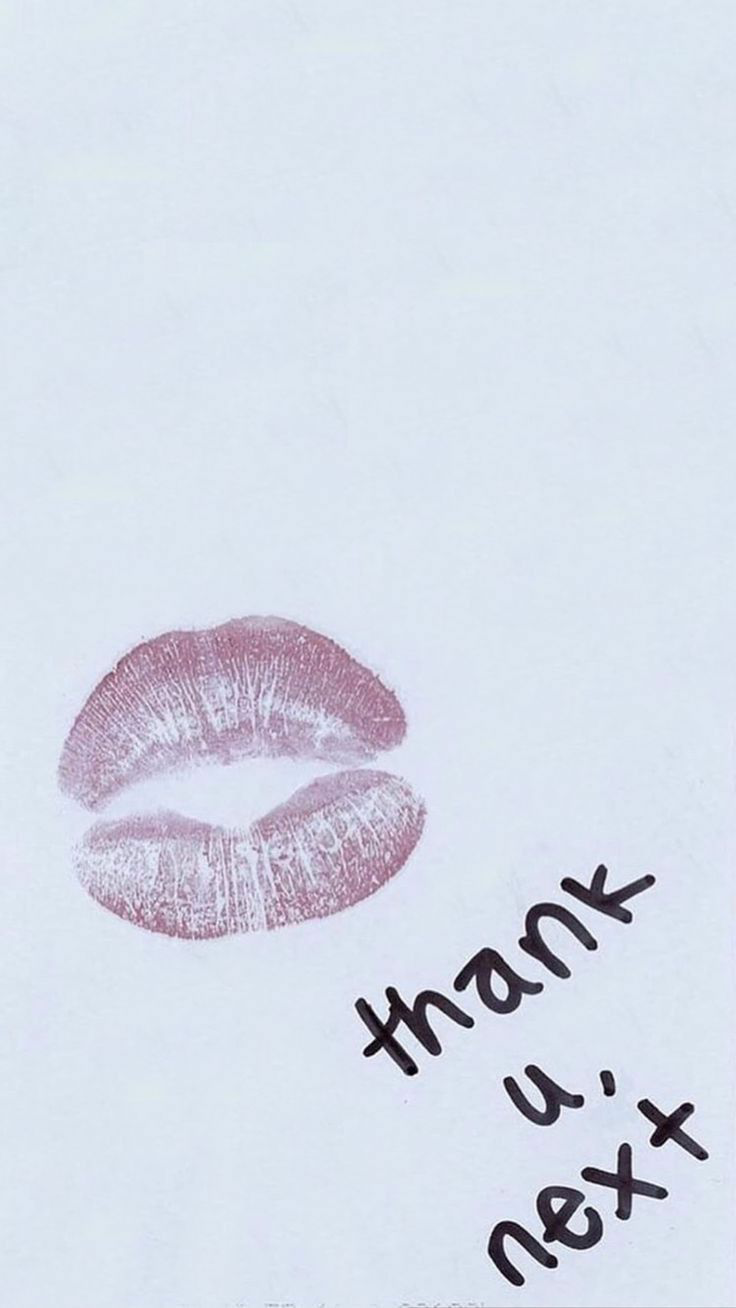 thank
u,
next